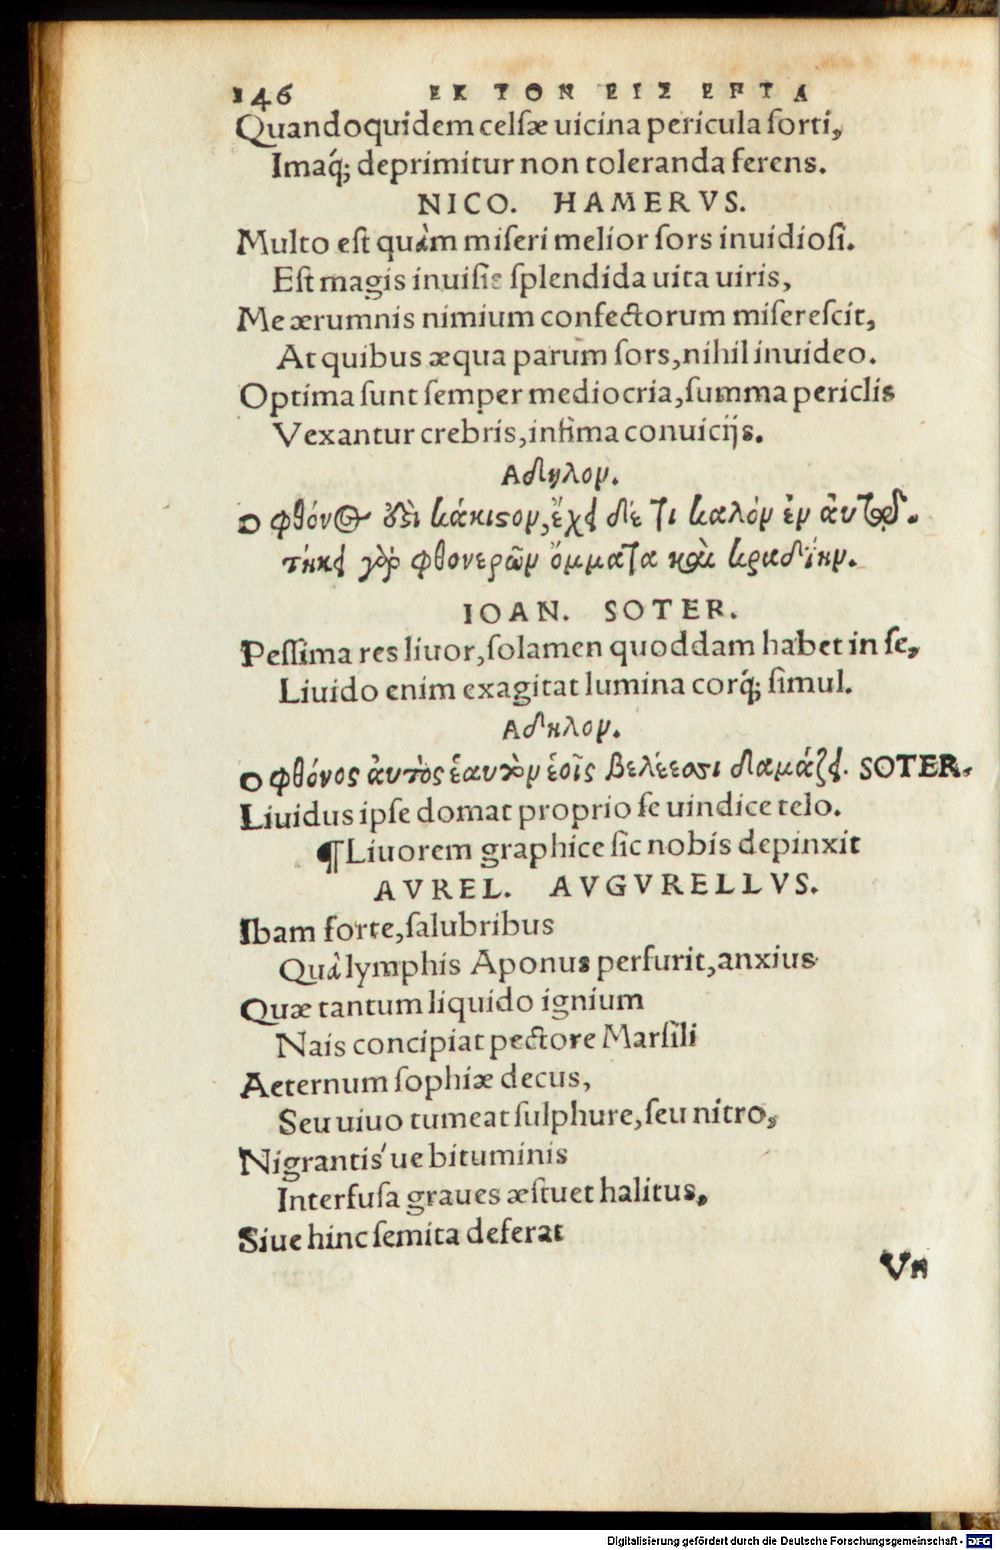 146 ΕΚ ΤΩΝ ΕΙΣ ΕΠΤΑ
Quandoquidem celsæ uicina pericula sorti,
Imaq́; deprimitur non toleranda ferens.
NICO. HAMERVS.
Multo est quàm miseri melior sors inuidiosi.
Est magis inuisis splendida uita uiris,
Me ærumnis nimium confectorum miserescit,
At quibus æqua parum sors, nihil inuideo.
Optima sunt semper mediocria, summa periclis
Vexantur crebris, infima conuicijs.
Αδηλον.
Ο φθόνος ὅδὶ κάκιστον, ἔχει δέ τι καλὸν ἐν αὑτῷ.
τήκει γὰρ φθονερῶν ὄμματα καὶ κραδίην.
IOAN. SOTER.
Pessima res liuor, solamen quoddam habet in se,
Liuido enim exagitat lumina corq́; simul.
Αδηλον.
Ο φθόνος ἀυτὸς ἑαυτὸν ἑοῖς βελέεσσι δαμάζει. SOTER.
Liuidus ipse domat proprio se uindice telo.
¶ Liuorem graphice sic nobis depinxit
AVREL. AVGVRELLVS.
Ibam forte, salubribus
Quà lymphis Aponus perfurit, anxius
Quæ tantum liquido ignium
Nais concipiat pectore Marsili
Aeternum sophiæ decus,
Seu uiuo tumeat sulphure, seu nitro,
Nigrantis'ue bituminis
Interfusa graues æstuet halitus,
Siue hinc semita deferat
Vn
Digitalisierung gefördert durch die Deutsche Forschungsgemeinschaft - DFG